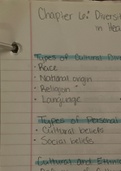 Chapter 6: Diversit
in Hea
Types of Cultural
• Race
• National origin
• Religion
• Language
Types of Personal
• Cultural beliefs
• Social beliefs
Cultural and Ethnic